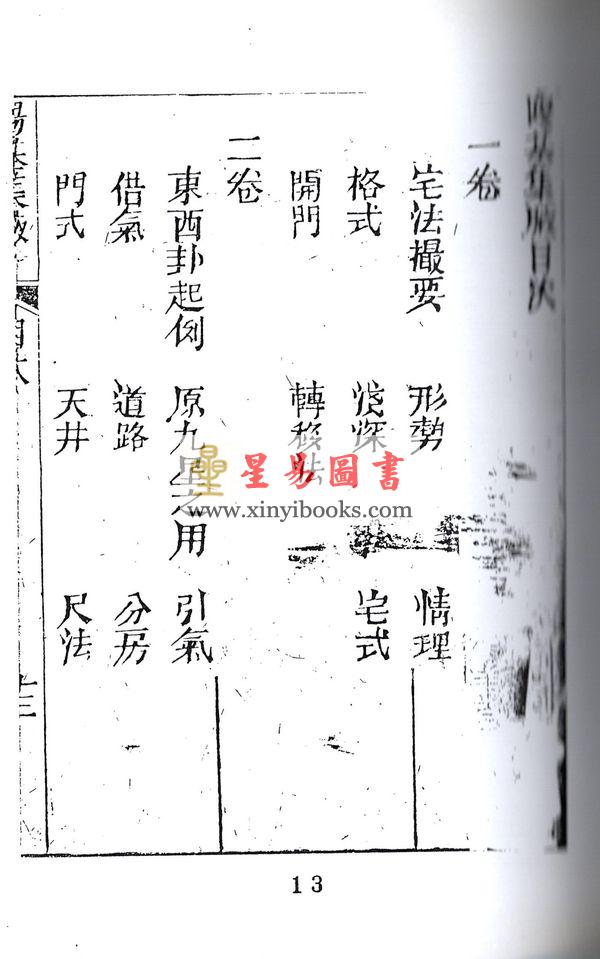 目次
一卷
宅法撮要 形勢 情理
格式 淺深 宅式
開門 轉移法
二卷
東西卦起例 原九星之用 引氣
借氣 道路 分房
門式 天井 尺法
星易圖書
www.xinyibooks.com
13